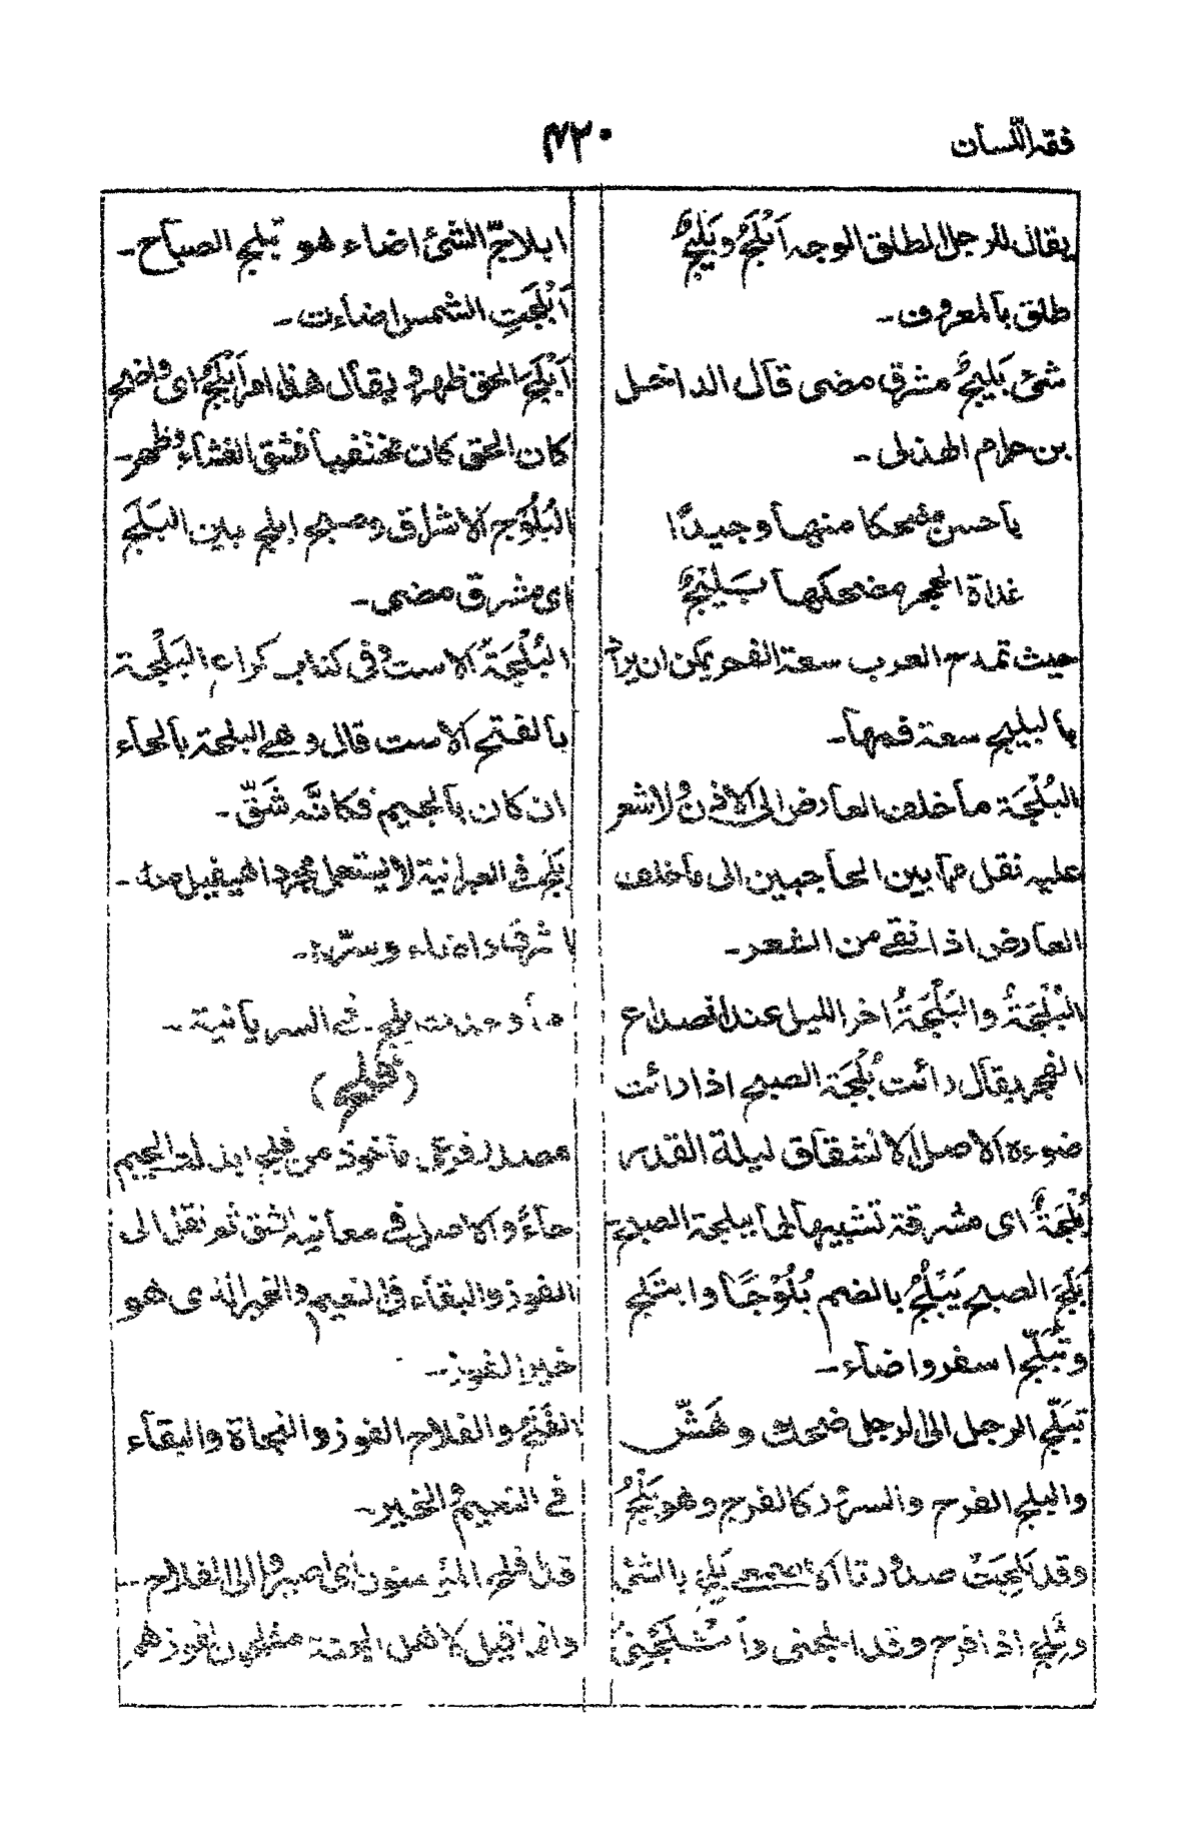 فقه اللّسان
٤٢٠
يقال للرجل الطلق الوجه اَبْلَجُ وبَلِيْجٌ
طلق بالمعروف ـ
شئ بَلِيجٌ مشرق مضى قال الداخل
بن حرام الهذلى ـ
بأحسن مضحكا منها وجيدًا
غداة الحجر مضحكها بَلِيْجٌ
حيث تمدح العرب سعة الفحر يمكن ان يراد
بالبليج سعة فمها ـ
البُلْجَة ما خلف العارض الى الاذن ولا شعر
عليه نقل مما بين الحاجبين الى ما خلف
العارض اذا نقى من الشعر ـ
البُلْجَةُ والبَلْجَةُ اخر الليل عند انصداع
الفجر يقال رائت بُلْجَة الصبح اذا رائت
ضوءه الاصل الانشقاق ليلة القدر
بُلْجَةٌ اى مشرقة تشبيها لها ببلجة الصبح
بَلَجَ الصبح يَبْلُجُ بالضم بُلُوْجًا وابتلج
وتَبَلَّج اسفر واضاء ـ
تبَلّج الرجل الى الرجل ضحك وهَشّ
والبلج الفرح والسرور كالفرح وهو بَلْجٌ
وقد بَلِجَتْ صدورنا بَلِج بالشئ
وثَلِج اذا فرح وقد ابلجنى واَثْلَجَنِىْ
ابلاجّ الشئ اضاء هو تبلج الصباح ـ
اَبْلَجَتِ الشمس اضاءت ـ
اَبْلَجَ الحق ظهر ويقال هذا امر اَبْلَجُ اى واضح
كان الحق كان مختفيا فشق الغشاء وظهر ـ
البُلُوْج الاشراق وصبح ابلج بين البَلَجَ
اى مشرق مضى ـ
البُلْجَةُ الاست وفى كتاب كراع البَلْجَة
بالفتح الاست قال وهى البلحة بالحاء
ان كان بالجيم فكانّه شَقّ ـ
بَلَجَ فى العبرانية لا يستعمل مجردا فيقبل منه ـ
لا شرق واضاء وسرّه ـ
ما وجدت بلج فى السريانية ـ
(فَلْح)
مصدر فرعى ماخوذ من فلج ابدلت الجيم
حاءً والاصل فى معانيه الشق ثم نقل الى
الفوز والبقاء فى النعيم والخير الّذى هو
خير الفوز ـ
الفَلَحُ والفلاح الفوز والنجاة والبقاء
فى النعيم والخير ـ
قد افلح المؤمنون اى اصيروا الى الفلاح ـ
وانما قيل لاهل الجنة مفلحون لفوزهم